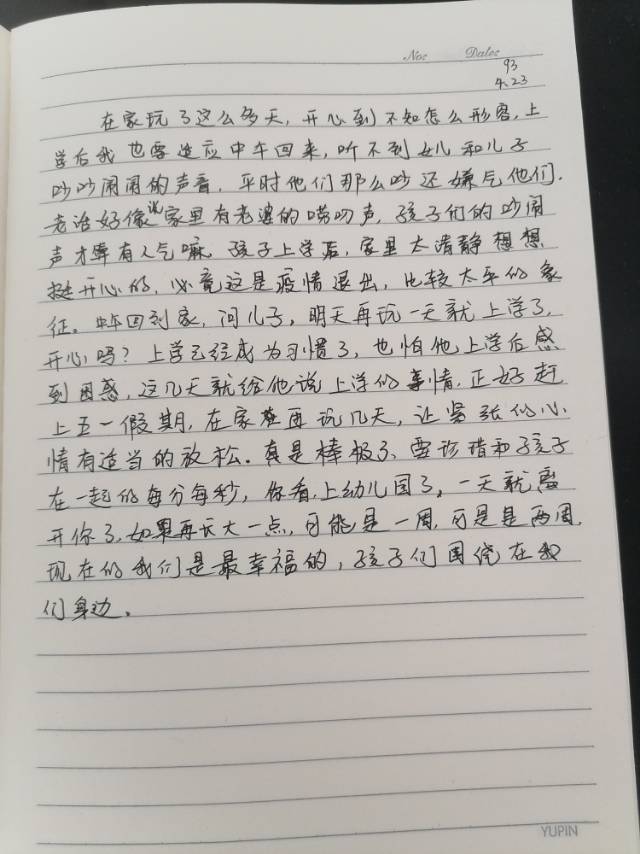 No: Date:
93
4.23
在家玩了这么多天，开心到不知怎么形容，上
学后我也要适应中午回来，听不到女儿和儿子
吵吵闹闹的声音，平时他们那么吵还嫌气他们．
老话好像说家里有老婆的唠叨声，孩子们的吵闹
声才算有人气嘛．孩子上学后，家里太清静想想
挺开心的，必竟这是疫情退出，比较太平的象
征．中午回到家，问儿子，明天再玩一天就上学了，
开心吗？上学已经成为习惯了，也怕他上学后感
到困惑，这几天就给他说上学的事情．正好赶
上五一假期，在家在再玩几天，让紧张的心
情有适当的放松．真是棒极了、要珍惜和孩子
在一起的每分每秒，你看．上幼儿园了，一天就离
开你了，如果再长大一点，可能是一周，可是是两周，
现在的我们是最幸福的，孩子们围绕在我
们身边。
YUPIN